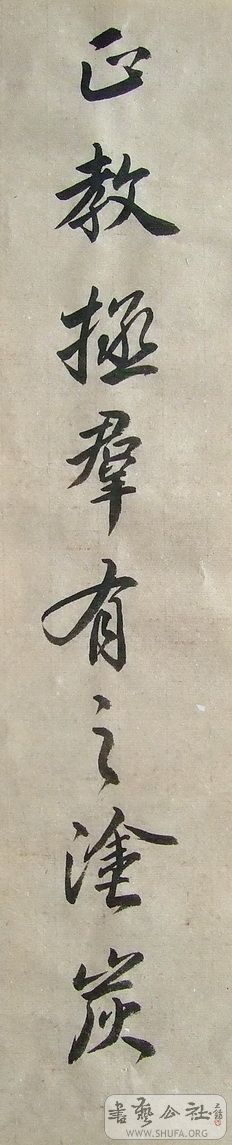 正教拯羣有之塗炭
書藝公社
WWW.SHUFA.ORG